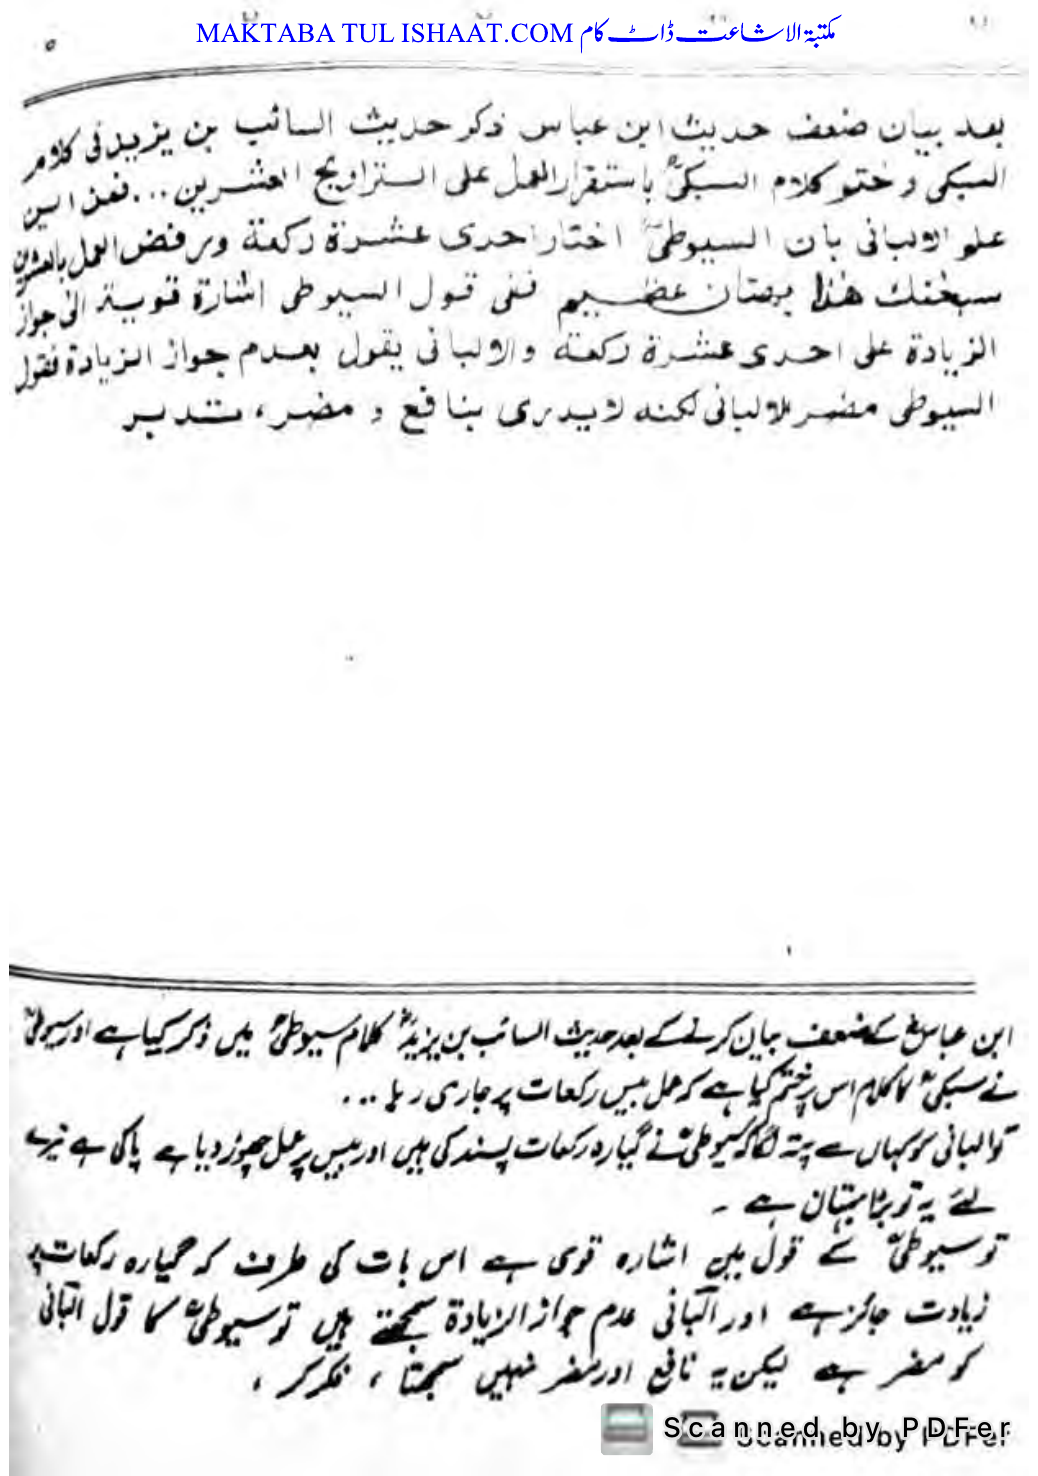 MAKTABA TUL ISHAAT.COM مکتبۃ الاشاعت ڈاٹ کام
۵
بعد بیان ضعف حدیث ابن عباس ذکر حدیث السائب بن یزید فی کلام
السبکی و ختم کلام السبکیؒ باستقرار العمل علی التراویح العشرین ... فمن این
علم الالبانی بان السیوطیؒ اختار احدی عشرة رکعة ورفض العمل بالعشرین
سبحٰنک هٰذا بهتان عظیم ففی قول السیوطی اشارة قویة الی جواز
الزیادة علی احدی عشرة رکعة والالبانی یقول بعدم جواز الزیادة فقول
السیوطی مضر للالبانی لکنه لایدری بنافع و مضر، تدبر
ابن عباسؓ کے ضعف بیان کرنے کے بعد حدیث السائب بن یزیدؓ کلام سیوطیؒ میں ذکر کیا ہے اور سیوطیؒ
نے سبکیؒ کا کلام اس پر ختم کیا ہے کہ عمل بیس رکعات پر جاری رہا ...
تو البانی کو کہاں سے پتہ لگا کہ سیوطیؒ نے گیارہ رکعات پسند کی ہیں اور بیس پر عمل چھوڑ دیا ہے پاکی ہے تیرے
لئے یہ تو بڑا بہتان ہے ۔
تو سیوطیؒ کے قول میں اشارہ قوی ہے اس بات کی طرف کہ گیارہ رکعات پر
زیادت جائز ہے اور البانی عدم جواز الزیادة سمجھتے ہیں تو سیوطیؒ کا قول البانی
کو مضر ہے لیکن یہ نافع اور مضر نہیں سمجھتا ، فکر کر ،
Scanned by PDFer
Scanned by PDFer